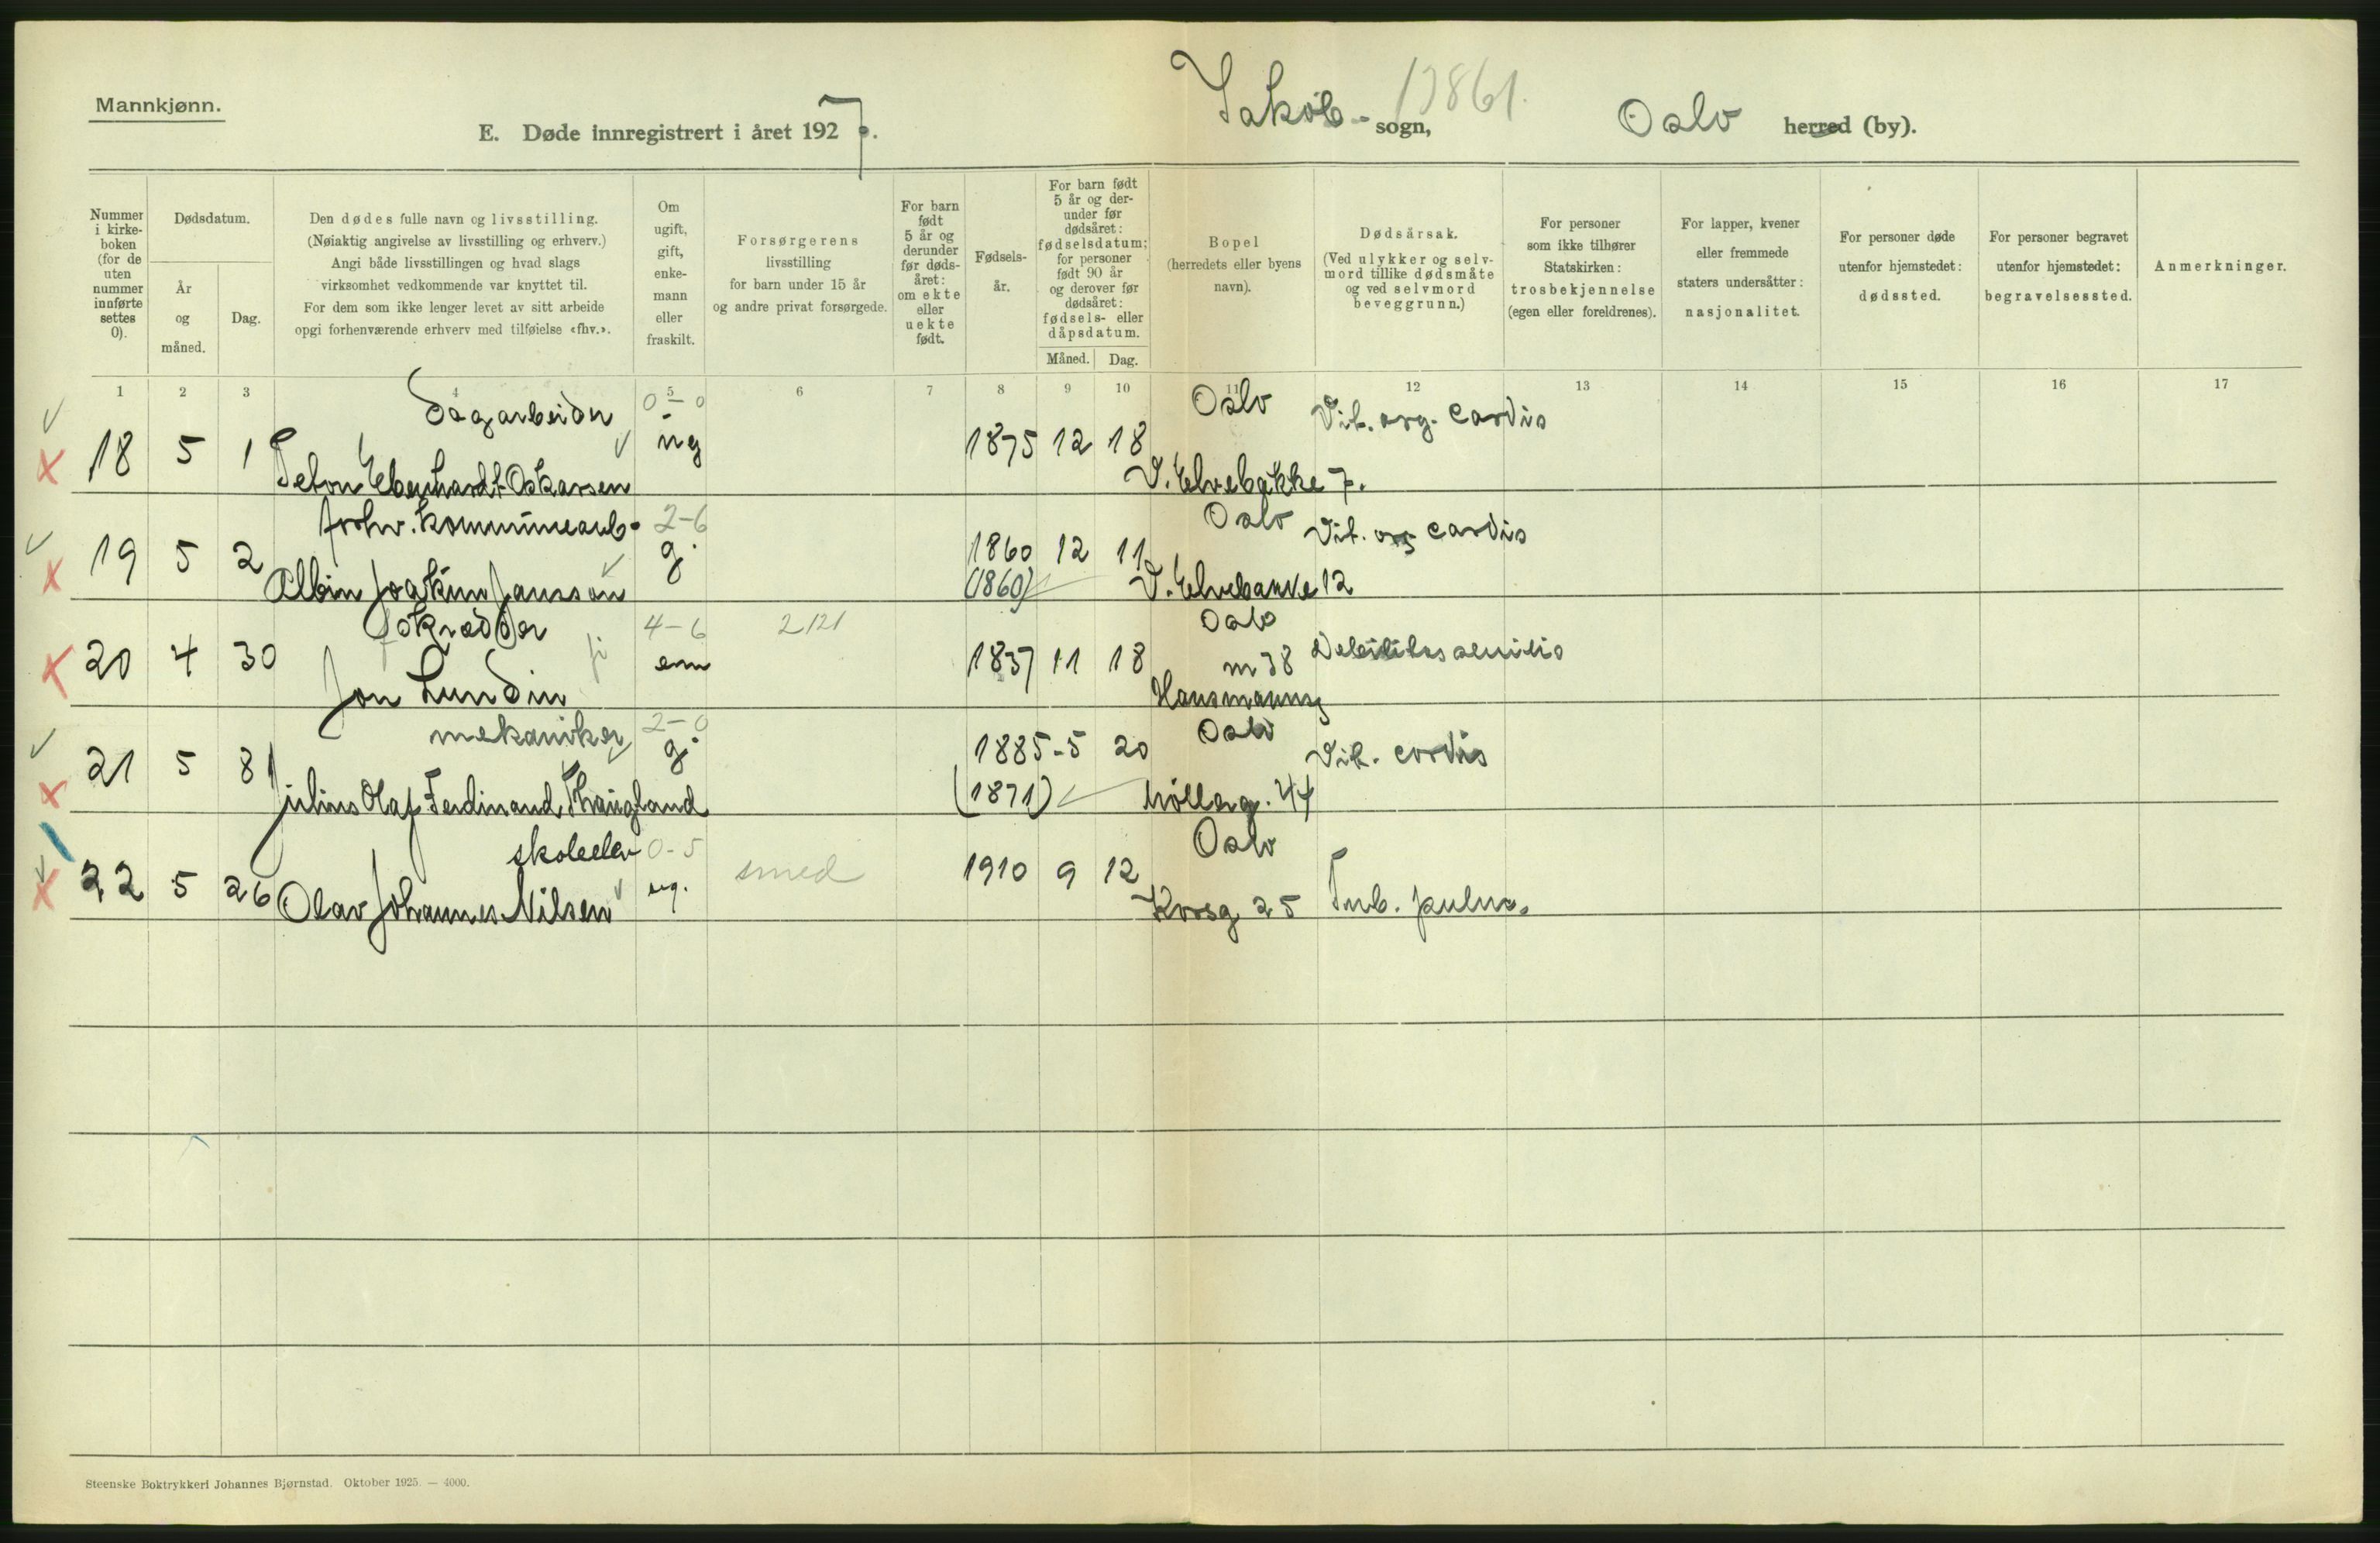 Mannkjønn.
E. Døde innregistrert i året 1927.
Jakob - sogn,
Oslo herred (by).
Nummer i kirke-boken (for de uten nummer innførte settes 0).
Dødsdatum.
År og måned.
Dag.
Den dødes fulle navn og livsstilling.
(Nøiaktig angivelse av livsstilling og erhverv.)
Angi både livsstillingen og hvad slags
virksomhet vedkommende var knyttet til.
For dem som ikke lenger levet av sitt arbeide
opgi forhenværende erhverv med tilføielse «fhv.».
Om ugift, gift, enke-mann eller fraskilt.
Forsørgerens
livsstilling
for barn under 15 år
og andre privat forsørgede.
For barn født 5 år og derunder før døds-året: om ekte eller uekte født.
Fødsels-år.
For barn født 5 år og der-under før dødsåret: fødselsdatum; for personer født 90 år og derover før dødsåret: fødsels- eller dåpsdatum.
Måned.
Dag.
Bopel
(herredets eller byens
navn).
Dødsårsak.
(Ved ulykker og selv-
mord tillike dødsmåte
og ved selvmord
beveggrunn.)
For personer
som ikke tilhører
Statskirken:
trosbekjennelse
(egen eller foreldrenes).
For lapper, kvener
eller fremmede
staters undersåtter:
nasjonalitet.
For personer døde
utenfor hjemstedet:
dødssted.
For personer begravet
utenfor hjemstedet:
begravelsessted.
Anmerkninger.
1 2 3 4 5 6 7 8 9 10 11 12 13 14 15 16 17
Dagarbeider 0-0 Oslo Vit. org. cordis
18 5 1 ug 1875 12 18
Oskarsen V. Elvebakke 7.
2-6 Oslo Vit. org cordis
19 5 2 g. 1860 12 11
Albin Joakim Jansson (1860) V. Elvebakke 12
skredder 4-6 2121 Oslo
20 4 30 em 1837 11 18 m 38 Debilitas senilis
Jon Lundin Hausmannsg
mekaniker 2-0 Oslo
21 5 8 g. 1885 - 5 20 Vit. cordis
Julius Olaf Ferdinand Thaugland (1871) Møllerg. 44
skoleelev 0-5 Oslo
22 5 26 ug. smed 1910 9 12
Olav Johannes Nilsen Korsg 25 Tub. pulm.
Steenske Boktrykkeri Johannes Bjørnstad. Oktober 1925. — 4000.